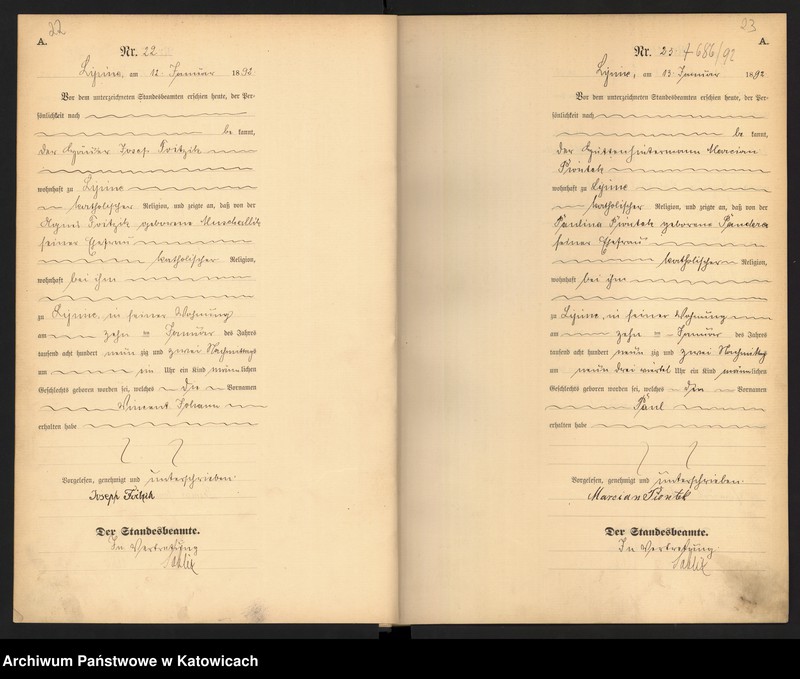 22
A.
Nr. 22
Lipine, am 12 Januar 1892.
Vor dem unterzeichneten Standesbeamten erschien heute, der Per-
sönlichkeit nach
be kannt,
der Josef
wohnhaft zu Lipine
katholischer Religion, und zeigte an, daß von der
geborene
seiner Ehefrau
katholischer Religion,
wohnhaft bei ihm
zu Lipine, in seiner Wohnung
am zehn ten Januar des Jahres
tausend acht hundert neun zig und zwei Nachmittags
um Uhr ein Kind männlichen
Geschlechts geboren worden sei, welches die Vornamen
Vincent Johann
erhalten habe
Vorgelesen, genehmigt und unterschrieben.
Joseph
Der Standesbeamte.
In Vertretung
23
A.
Nr. 23 † 686/92
Lipine, am 13 Januar 1892
Vor dem unterzeichneten Standesbeamten erschien heute, der Per-
sönlichkeit nach
be kannt,
der Hüttenhintermann Marcian
Piontek
wohnhaft zu Lipine
katholischer Religion, und zeigte an, daß von der
Paulina Piontek geborene
seiner Ehefrau
katholischer Religion,
wohnhaft bei ihm
zu Lipine, in seiner Wohnung
am zehn ten Januar des Jahres
tausend acht hundert neun zig und zwei Nachmittags
um neun drei viertel Uhr ein Kind männlichen
Geschlechts geboren worden sei, welches den Vornamen
Paul
erhalten habe
Vorgelesen, genehmigt und unterschrieben.
Marcian Piontek
Der Standesbeamte.
In Vertretung
Archiwum Państwowe w Katowicach